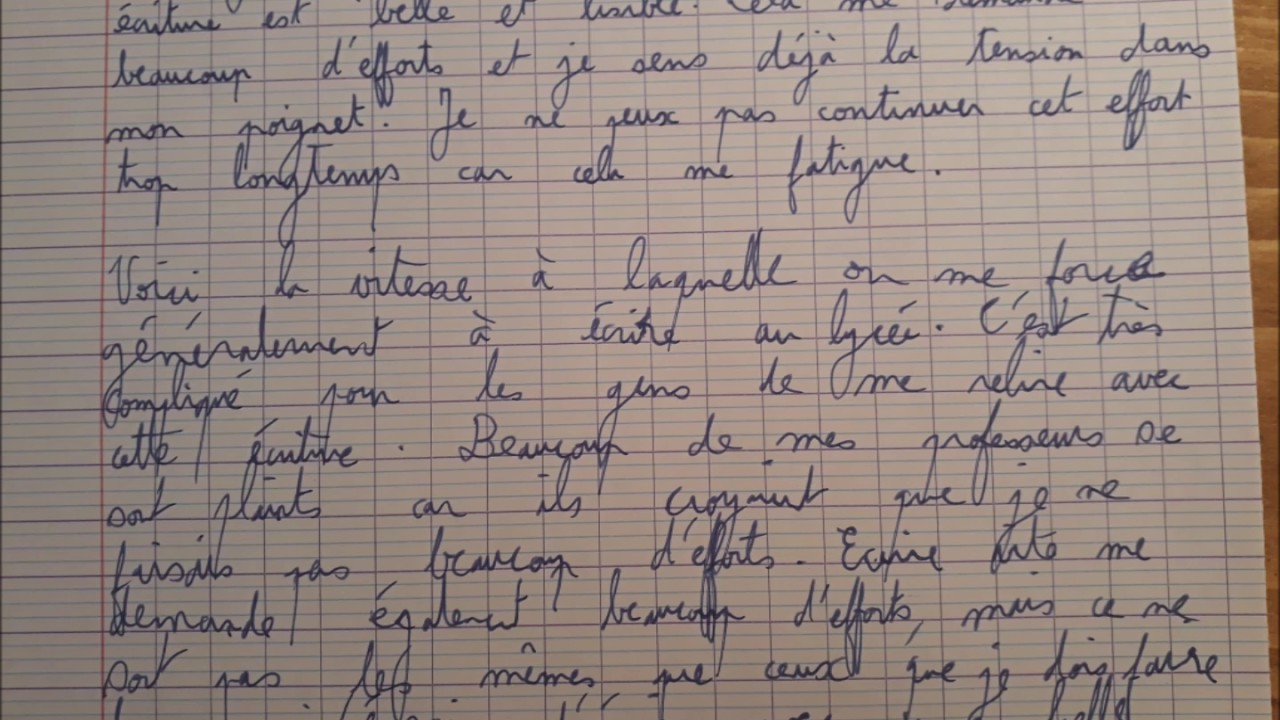 écriture est belle et lisible. Cela me demande
beaucoup d'efforts et je sens déjà la tension dans
mon poignet. Je ne peux pas continuer cet effort
trop longtemps car cela me fatigue.
Voici la vitesse à laquelle on me force
généralement à écrire au lycée. C'est très
compliqué pour les gens de me relire avec
cette écriture. Beaucoup de mes professeurs se
sont plaints car ils croyaient que je ne
faisais pas beaucoup d'efforts. Ecrire vite me
demande également beaucoup d'efforts, mais ce ne
sont pas les mêmes que ceux que je dois faire